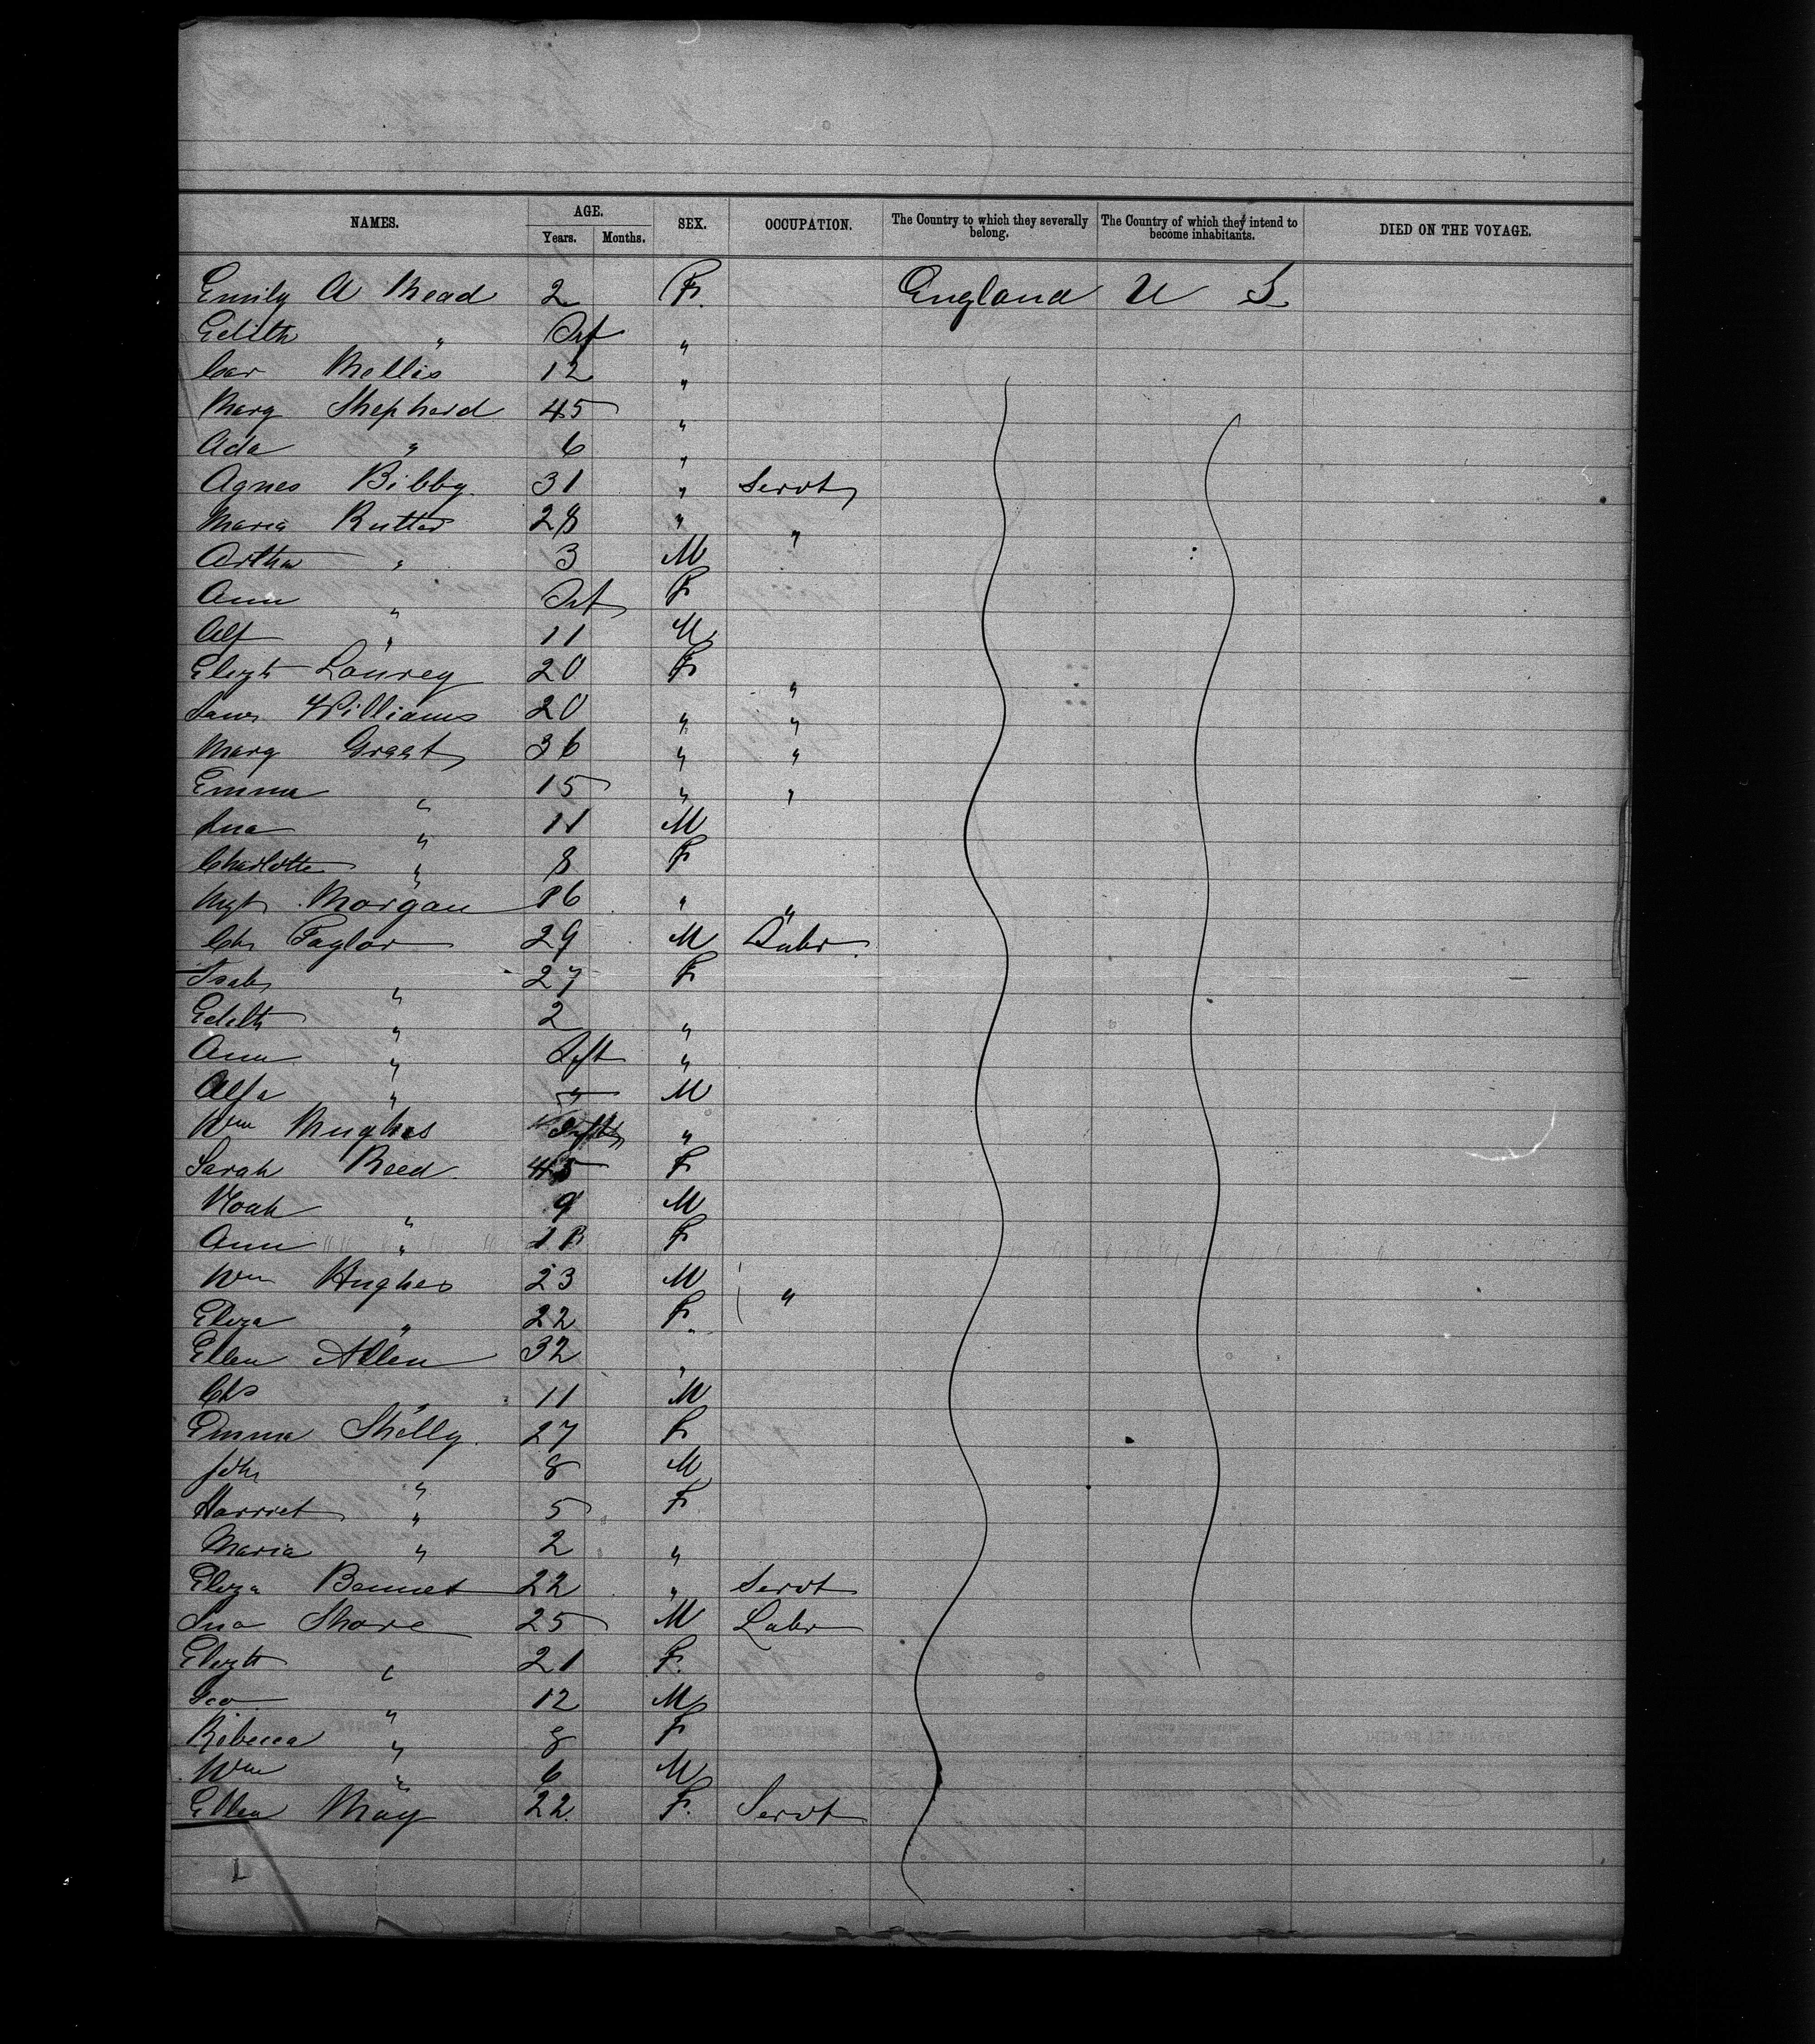 NAMES. AGE. Years. Months. SEX. OCCUPATION. The Country to which they severally belong. The Country of which they intend to become inhabitants. DIED ON THE VOYAGE.
Emily A Mead 2 F. England U S
Edith " Inf "
Car Mellis 12 "
Marg Shepherd 45 "
Ada " 6 "
Agnes Bibby. 31 " Servt
Maria Rutter 28 " "
Arthur " 3 M
Ann " Inf F
Alf " 11 M
Elizth Lourey 20 F "
Jane Williams 20 " "
Marg Graat 36 " "
Emma " 15 " "
Jno " 11 M
Charlotte " 8 F
Mgt Morgan 16 " "
Chs Taylor 29 M Labr.
Isab " 27 F
Edith " 2 "
Ann " Inft "
Alfd " " M
Wm Hughes Inft "
Sarah Reed. 45 F
Noah " 9 M
Ann " F
Wm Hughes 23 M "
Eliza " 22 F
Ellen Allen 32 "
Chs " 11 M
Emma Shelly. 27 F
John " 8 M
Harriet " 5 F
Maria " 2 "
Eliza Bennet 22 " Servt
Jno Shore 25 M Labr
Elizth " 21 F.
Geo " 12 M
Rebecca " 8 F
Wm " 6 M
Ellen May 22. F. Servt